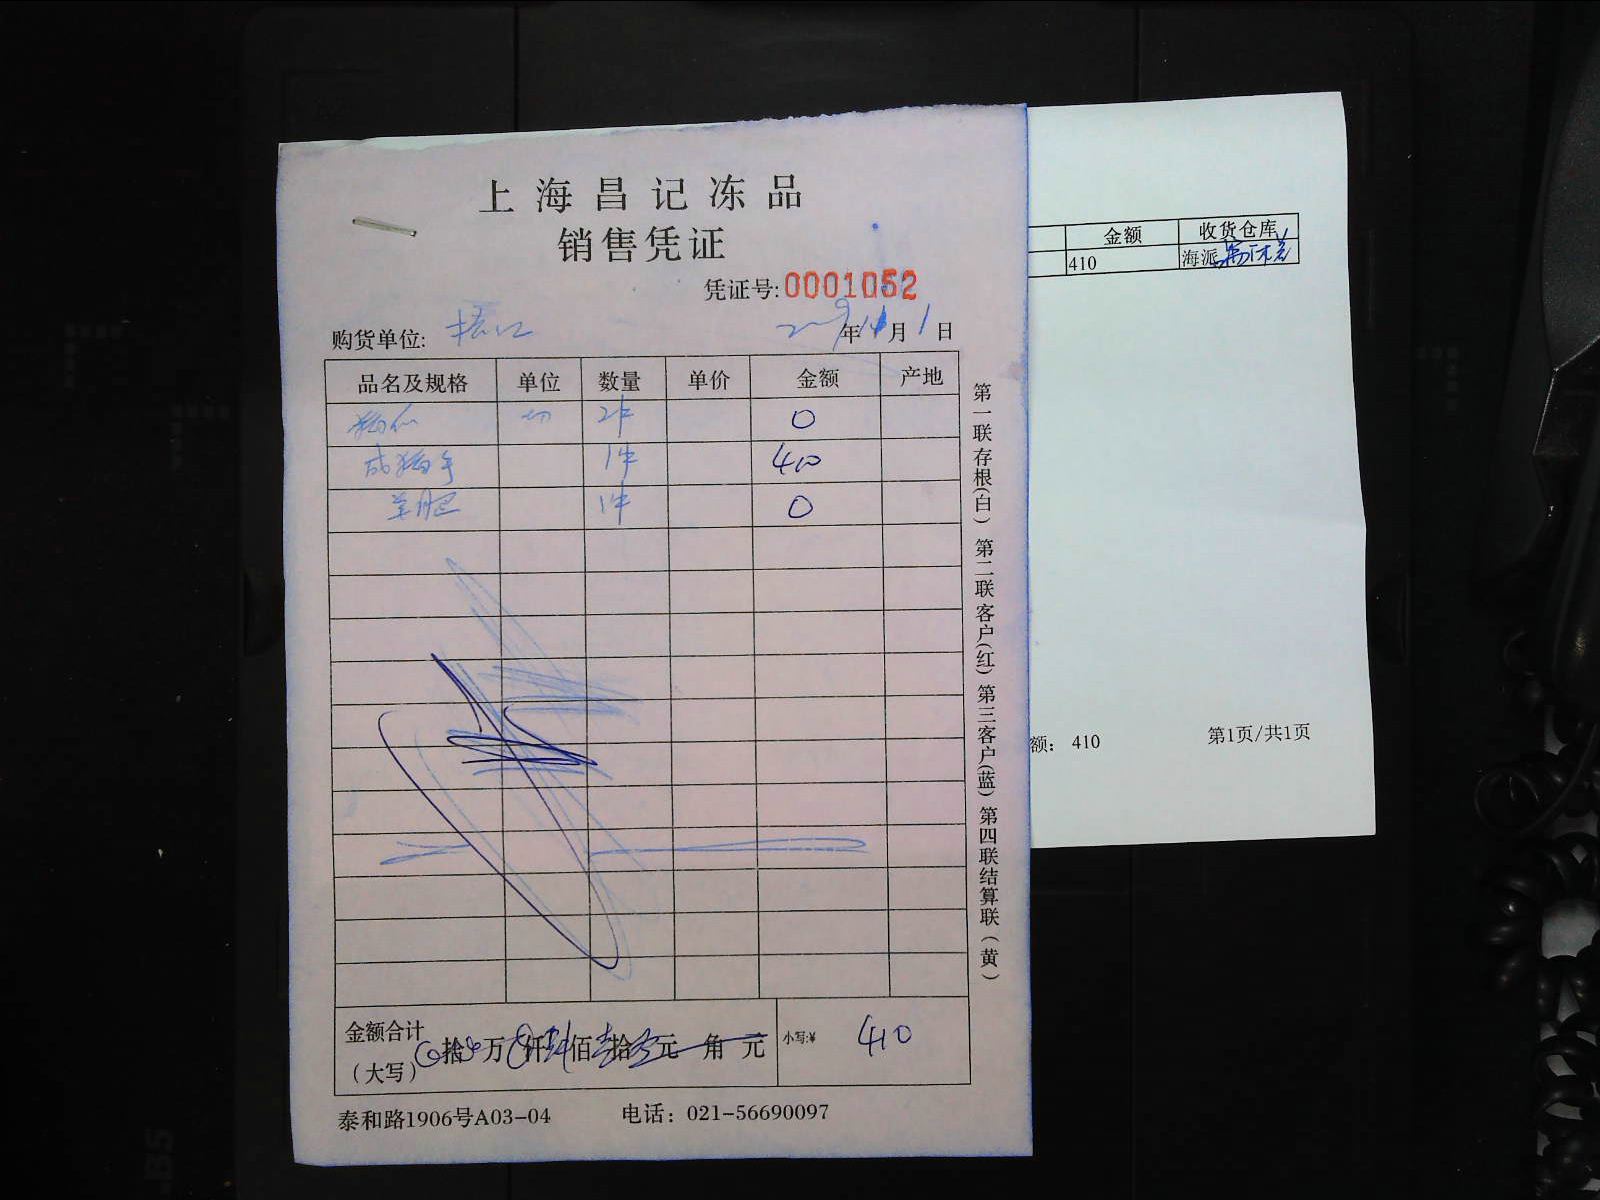 上海昌记冻品
销售凭证
凭证号:0001052
购货单位: 年 月1日
品名及规格 单位 数量 单价 金额 产地
2件 0
1件 410
羊肥 1件 0
金额合计
(大写) 拾 万 仟 佰 拾 元 角 元 小写:¥ 410
泰和路1906号A03-04 电话：021-56690097
第一联存根(白) 第二联客户(红) 第三客户(蓝) 第四联结算联(黄)
金额 收货仓库
410 海派
额： 410 第1页/共1页